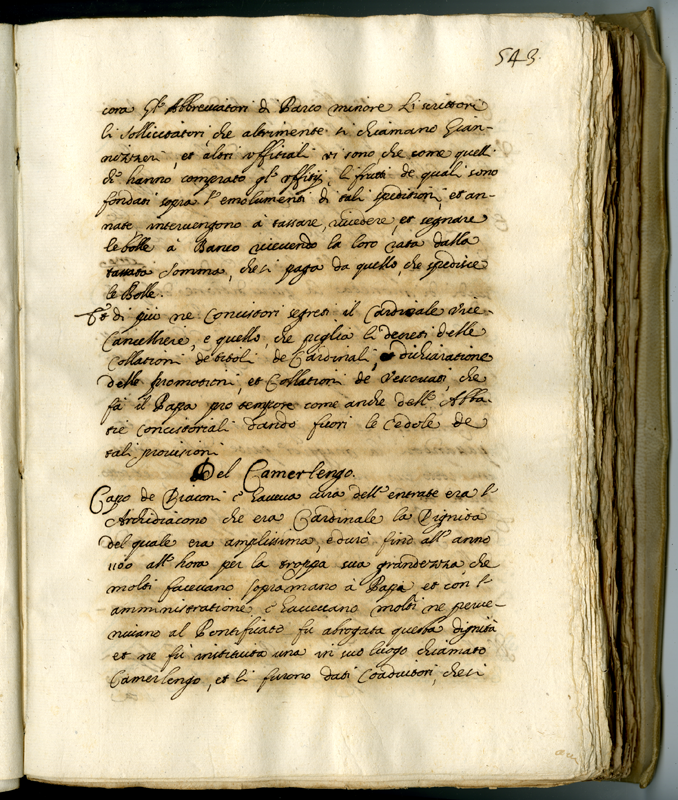 543.
cora gl'Abbreviatori di Parco minore li scrittori
li sollicitatori, che altrimente si chiamano Gian-
nizzeri, et altri uffitiali vi sono che come quelli
ch'hanno comprato gl'uffitij, li frutti de quali sono
fondati sopra l'emolumenti di tali speditioni, et an-
nate, intervengono à tassare, rivedere, et segnare
le bolle à Banco ricevendo la loro rata dalla
tassata somma, che si paga da quello, che spedisce
le Bolle.
Et di più ne Concistori segreti il Cardinale Vice-
Cancelliere, è quello, che piglia li decreti delle
Collationi de titoli de Cardinali, e dichiaratione
delle promotioni, et Collationi de Vescovati, che
fà il Papa pro tempore come anche dell'Abba-
tie Concistoriali dando fuori le Cedole de
tali provisioni
Del Camerlengo.
Capo de Diaconi c'haveva cura dell'entrate era l'
Archidiacono che era Cardinale la Dignità
del quale era amplissima, e durò fino all'anno
1100 all'hora per la troppa sua grandezza, che
molti facevano sopramano à Papa et con l'
amministratione c'havevano molti ne perve-
nivano al Pontificato fu abrogata questa dignità
et ne fù instituita una in suo luogo chiamato
Camerlengo, et li furono dati Coadiutori, che si